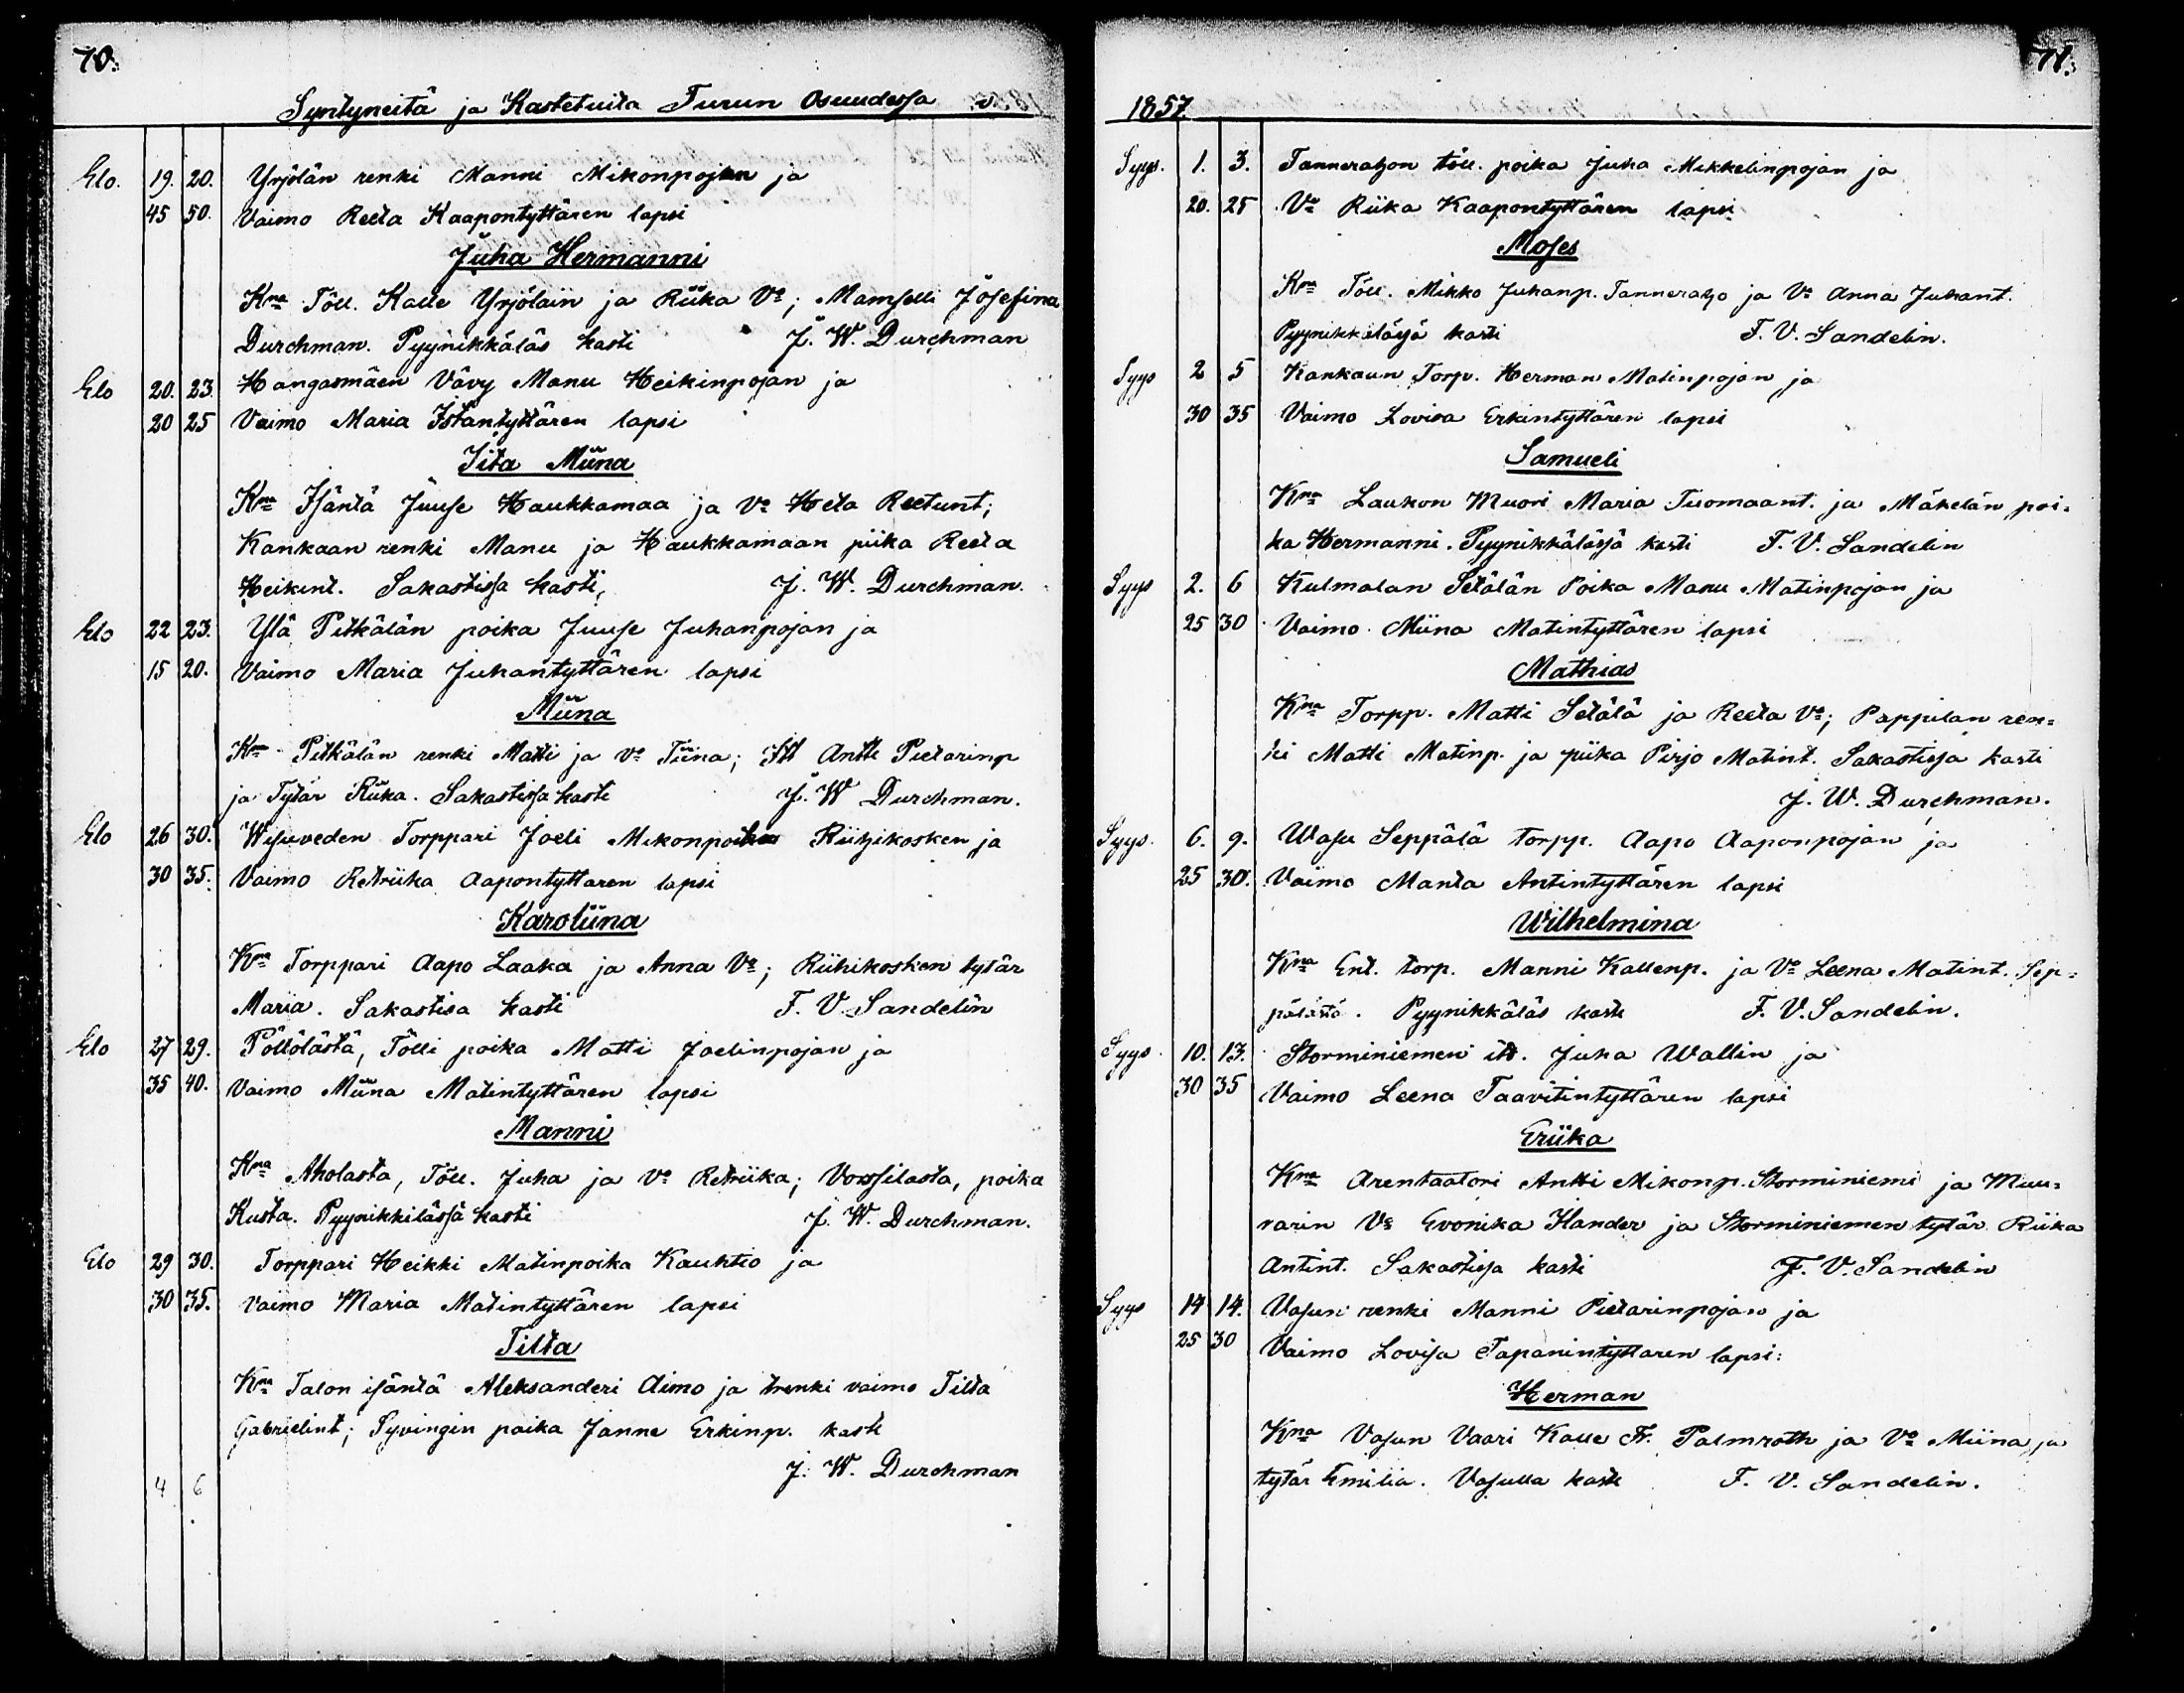 70.
Syntyneitä ja Kastetuita Turun Osuudessa v.
Elo. 19. 20. Yrjölän renki Manni Mikonpojan ja
45 50. Vaimo Reeta Kaapontyttären lapsi
Juha Hermanni
Kna Töll. Kalle Yrjölain ja Riika Vo; Mamselli Josefina
Durchman. Pyynikkäläs kasti J. W. Durchman
Elo 20. 23. Hangasmäen Vävy Manu Heikinpojan ja
20 25 Vaimo Maria Istantyttären lapsi
Iita Miina
Kna Isäntä Juuse Haukkamaa ja Vo Heta Reetunt;
Kankaan renki Manu ja Haukkamaan piika Reeta
Heikint. Sakastissa kasti, J. W. Durchman.
Elo 22 23. Ylä Pitkälän poika Juuse Juhanpojan ja
15 20. Vaimo Maria Juhantyttären lapsi
Miina
Kna Pitkälän renki Matti ja vo Tiina; Itt Antti Pietarinp
ja Tytär Riika. Sakastissa kasti J. W Durchman.
Elo 26 30. Wesuveden Torppari Joeli Mikonpoika Riihikosken ja
30 35. Vaimo Retriika Aapontyttaren lapsi
Karoliina
Kna Torppari Aapo Laaka ja Anna Vo; Riihikosken tytär
Maria. Sakastisa kasti F. V. Sandelin
Elo 27 29. Pöllölästä, Tölli poika Matti Joelinpojan ja
35 40. Vaimo Miina Matintyttären lapsi
Manni
Kna Aholasta, Töll. Juha ja Vo Retriika; Vossilasta, poika
Kusta. Pyynikkilässä kasti J. W. Durchman.
Elo 29 30. Torppari Heikki Matinpoika Kauhtio ja
30 35. Vaimo Maria Matintyttären lapsi
Tilta
Kna Talon isäntä Aleksanderi Aimo ja trenki vaimo Tilta
Gabrielint; Syvingin poika Janne Erkinp. kasti
J. W. Durchman
4 6
71.
1857.
Syys. 1. 3. Tannerahon töll. poika Juha Mikkelinpojan ja
20. 25 Vo Riika Kaapontyttären lapsi
Moses
Kna Töll. Mikko Juhanp. Tanneraho ja Vo Anna Juhant.
Pyynikkälässä kasti F. V. Sandelin.
Syys 2 5 Kankaun Torp. Herman Matinpojan ja
30 35 Vaimo Lovisa Erkintyttären lapsi
Samueli
Kna Laukon Muori Maria Tuomaant. ja Mäkelän poi-
ka Hermanni. Pyynikkälässä kasti F. V. Sandelin
Syys 2. 6 Kulmalan Setälän Poika Manu Matinpojan ja
25 30 Vaimo Miina Matintyttären lapsi
Mathias
Kna Torpp. Matti Setälä ja Reeta Vo; Pappilan ren-
ki Matti Matinp. ja piika Pirjo Matint. Sakastissa kasti
J. W. Durchman.
Syys. 6. 9. Wasu Seppälä torpp. Aapo Aaponpojan ja
25 30. Vaimo Manta Antintyttären lapsi
Wilhelmina
Kna Ent. torp. Manni Kallenp. ja Vo Leena Matint. Sep-
pälästä. Pyynikkäläs kasti F. V. Sandelin.
Syys. 10. 13. Storminiemen itt. Juha Wallin ja
30 35 Vaimo Leena Taavitintyttären lapsi
Eriika
Kna Arentaatori Antti Mikonp. Storminiemi ja Muu-
rarin Vo Evonika Hander ja Storminiemen tytär Riika
Antint. Sakastissa kasti F. V. Sandelin
Syys 14 14. Vasun renki Manni Pietarinpojan ja
25 30 Vaimo Lovisa Tapanintyttaren lapsi:
Herman
Kna Vasun Vaari Kalle Fr. Palmroth ja Vo Miina ja
tytär Emilia. Vasulla kasti F. V. Sandelin.